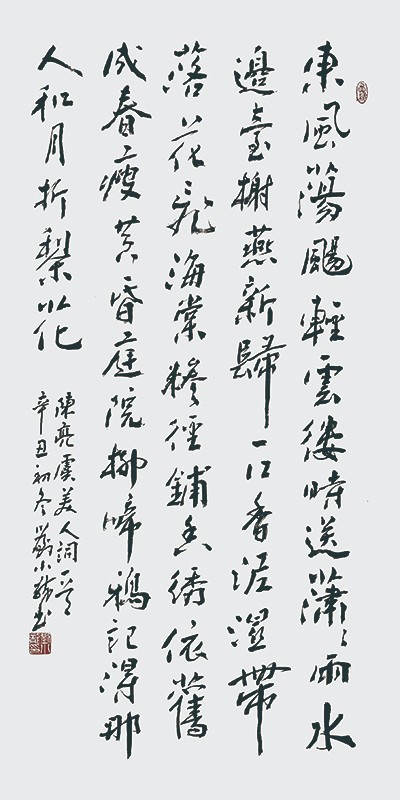 東風蕩颺輕雲縷時送瀟瀟雨水
邊臺榭燕新歸一口香泥濕帶
落花飛海棠糝徑鋪香繡依舊
成春瘦黃昏庭院柳啼鴉記得那
人和月折梨花
陳亮虞美人詞一首
辛丑初冬